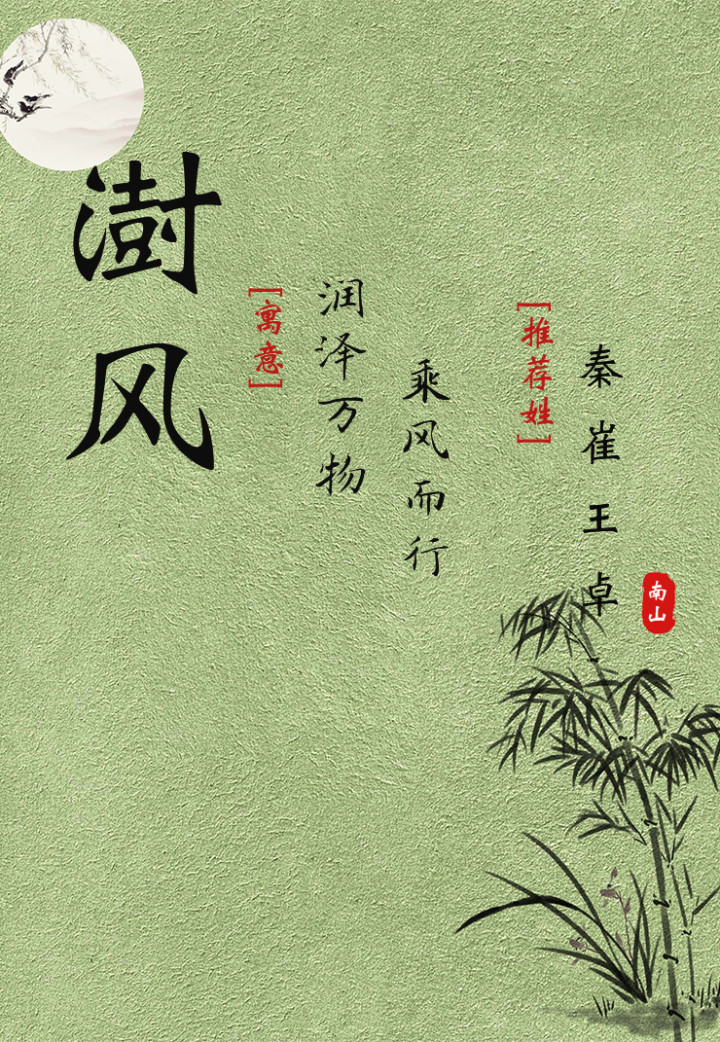 澍风
[寓意]
润泽万物
乘风而行
[推荐姓]
秦崔王卓
南山